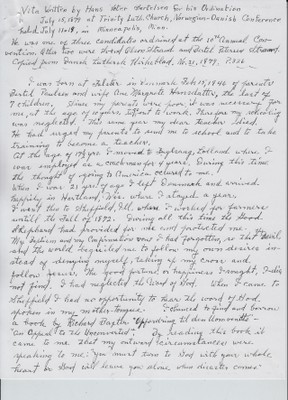 Vita Written by Hans Bertelson for his Ordination
July 15, 1879 at Trinity Luth. Church, Norwegian-Danish Conference
held July 11-18, in Minneapolis, Minn.
He was one of three candidates ordained at the 10th Annual Con-
vention. Other two were
Copied from Danish Lutheran Kirkeblad,
I was born at Falster in Danmark Feb. 15, 1846 of parents
Bertel Poulsen and wife Ane Margrete Hansdatter, the last of
7 children. Since my parents were poor, it was necessary for
me, at the age of to go out to work. Therefore my schooling
was neglected. The same year my dear Teacher
He had urged my parents to send me to school and to take
training to become a teacher.
At the age of I moved to Lolland where I
was employed as a for 4 years. During this time
the thought of going to America occured to me.
When I was 21 years of age I left Danmark and arrived
happily in Northrup, Wis. where I stayed a year.
I went to Sheffield, Ill. where I worked for farmers
until the Fall of 1872. During all this time the Good
Shepherd had provided for me and protected me.
My baptism and my confirmation vow I had forgotten, as the Devil,
and the World beguiled me to follow my own desires in-
stead of denying myself, taking up my cross and
follow Jesus. The good fortune or happiness I sought, I did
not find. I had neglected the Word of God. When I came to
Sheffield I had no opportunity to hear the word of God
spoken in my mother-tongue. I chanced to find and borrow
a book by Richard Baxter "Opvækning til den Uomvendte" -
"An Appeal to the Unconverted". By reading this book it
came to me that my outward circumstances were
speaking to me: "You must turn to God with your whole
heart or God will leave you alone when disaster comes"